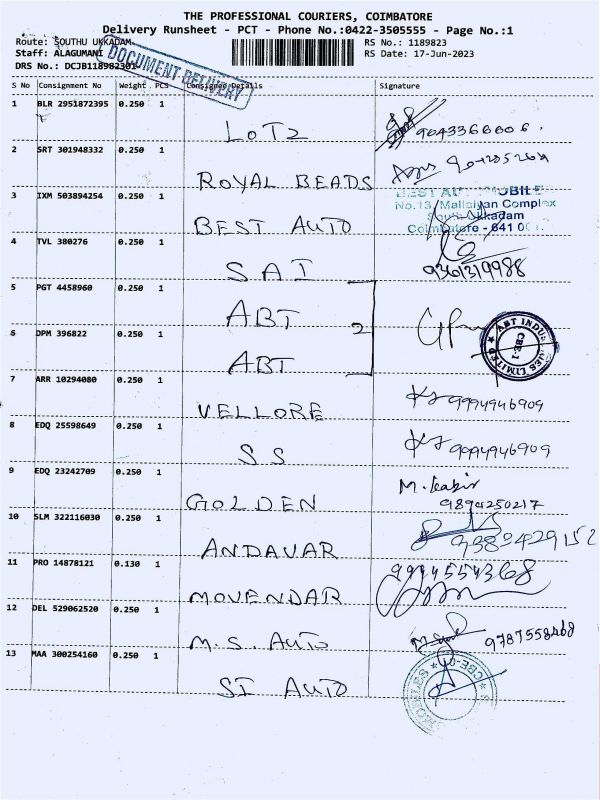 THE PROFESSIONAL COURIERS, COIMBATORE
Delivery Runsheet - PCT - Phone No.:0422-3505555 - Page No.:1
Route: SOUTHU UKKADAM
RS No.: 1189823
Staff: ALAGUMANI
RS Date: 17-Jun-2023
DRS No.: DCJB118982301
DOCUMENT DELIVERY
S No Consignment No Weight PCS Consigned Details Signature
1 BLR 2951872395 0.250 1
LOTZ 9043366606.
2 SRT 301948332 0.250 1
ROYAL BEADS
3 IXM 503894254 0.250 1
BEST AUTO
No.13, Malliyan Complex
4 TVL 380276 0.250 1
SAI 9361319988
5 PGT 4458960 0.250 1
ABT
2
ABT INDUSTRIES LIMITED
CBE-1
6 DPM 396822 0.250 1
ABT
7 ARR 10294080 0.250 1
VELLORE 9994946909
8 EDQ 25598649 0.250 1
SS 9994946909
9 EDQ 23242709 0.250 1
GOLDEN M. Kabir
9894250217
10 SLM 322116030 0.250 1
ANDAVAR 9380429152
11 PRO 14878121 0.130 1
MOVENDAR 9994554368
12 DEL 529062520 0.250 1
M.S. AUTO 9787558468
13 MAA 300254160 0.250 1
SI AUTO